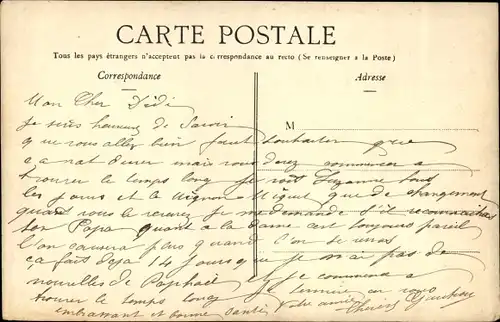 CARTE POSTALE
Tous les pays étrangers n'acceptent pas la correspondance au recto (Se renseigner a la Poste)
Correspondance
Adresse
M
Mon Cher Dédé
Je suis heureux de Savoir
que vous allez bien faut souhaiter que
ça va durer mais vous devez commencer a
trouver le temps long Je voit Suzanne tous
les jours et le mignon Miguel que de changement
quand vous le reverez Je me demande S'il reconnaitra
Son Papa quant a la Dame c'est toujours pareil
l'on causera plus quand l'on se verras
ça fait deja 14 jours que je n'ai pas de
nouvelles de Raphael et je commence a
trouver le temps long Je termine en vous
embrassant et bonne Santé Votre amie